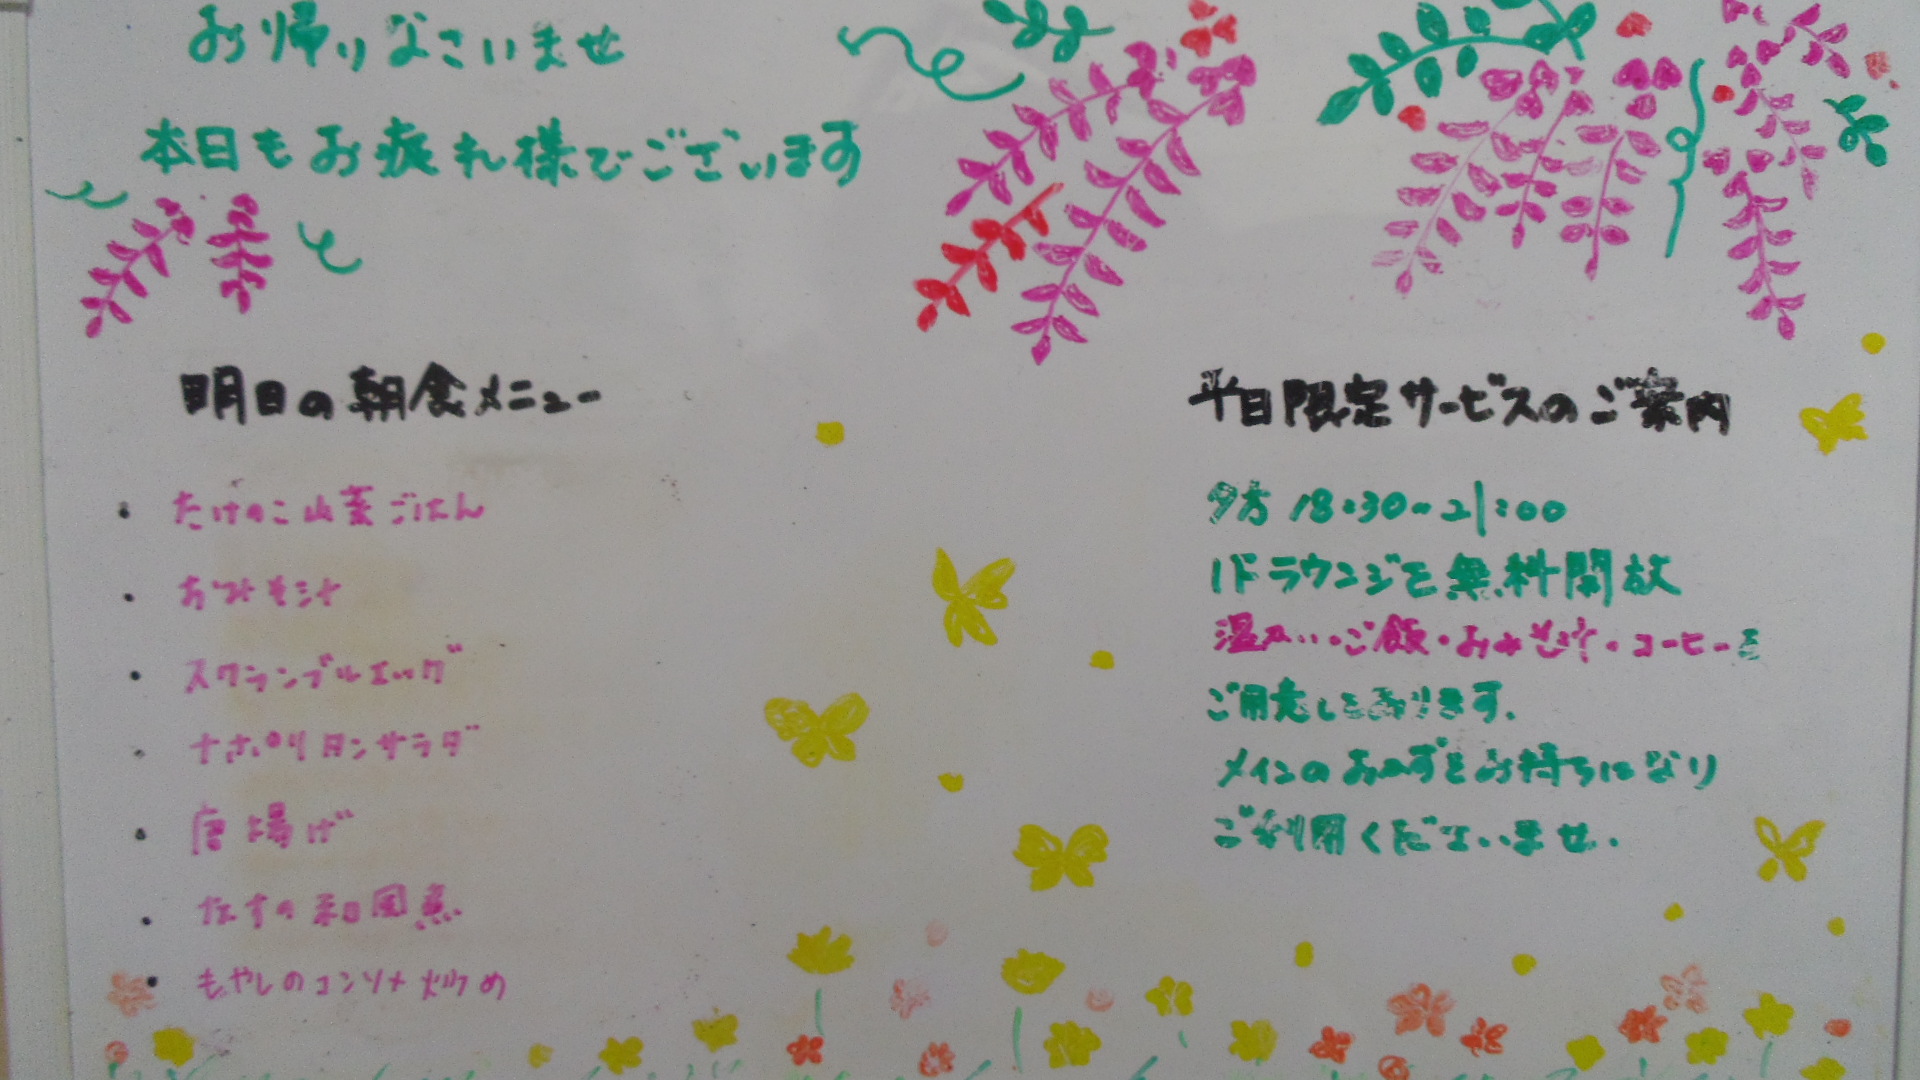 お帰りなさいませ
本日もお疲れ様でございます
明日の朝食メニュー
・たけのこ山菜ごはん
・おみそ汁
・スクランブルエッグ
・ナポリタンサラダ
・唐揚げ
・なすの和風煮
・もやしのコンソメ炒め
平日限定サービスのご案内
夕方 18:30~21:00
1Fラウンジを無料開放
温かいご飯・おみそ汁・コーヒーを
ご用意しております。
メインのおかずをお持ちになり
ご利用くださいませ。